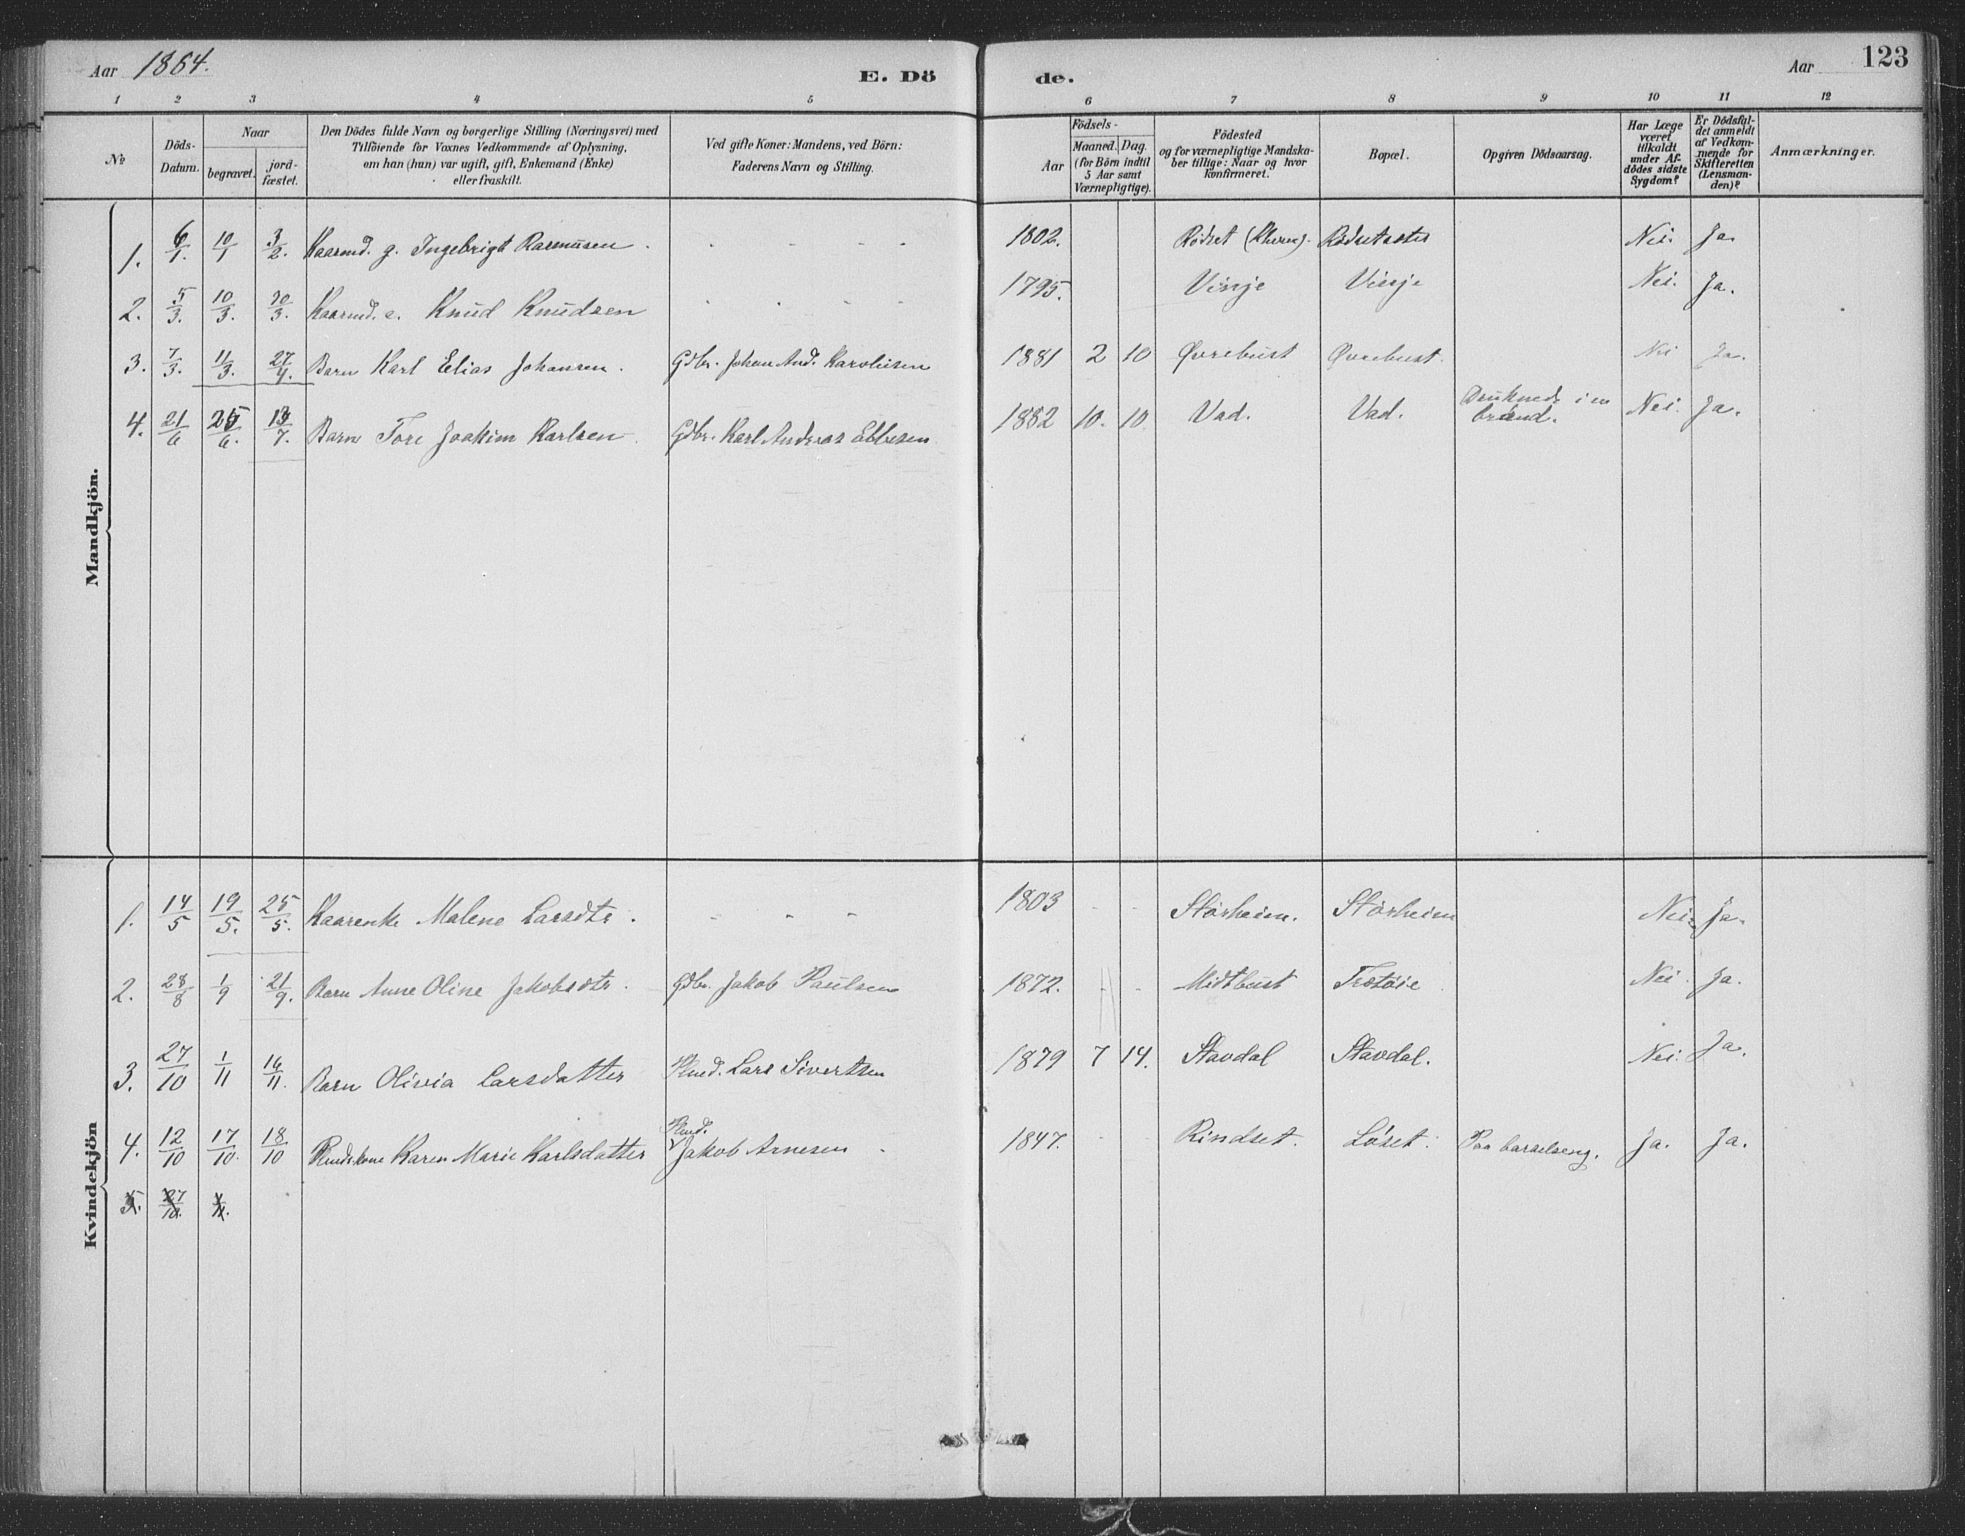 Aar 1864. E. Dö de. Aar 123
1 2 3 4 5 6 7 8 9 10 11 12
№
Döds-Datum.
Naar
begravet.
jord-fæstet.
Den Dödes fulde Navn og borgerlige Stilling (Næringsvei) med
Tilföiende for Voxnes Vedkommende af Oplysning,
om han (hun) var ugift, gift, Enkemand (Enke)
eller fraskilt.
Ved gifte Koner: Mandens, ved Börn:
Faderens Navn og Stilling.
Födsels-
Aar
Maaned. Dag.
(for Börn indtil
5 Aar samt
Værnepligtige).
Födested
og for værnepligtige Mandska-
ber tillige: Naar og hvor
konfirmeret.
Bopæl.
Opgiven Dödsaarsag.
Har Læge
været
tilkaldt
under Af-
dödes sidste
Sygdom?
Er Dödsfal-
det anmeldt
af Vedkom-
mende for
Skifteretten
(Lensman-
den)?
Anmærkninger.
Mandkjön.
1. 6/1 10/1 3/2. Kaarmd. g. Ingebrigt Rasmusen. - - - - 1802. Rødset Rødsetsæter Nei. Ja.
2. 5/3. 10/3. 30/3. Kaarmd. e. Knud Knudsen - - - - 1795. Vinje Vinje Nei. Ja.
3. 7/3. 11/3. 27/4. Barn Karl Elias Johansen. Gdbr. Johan And. Karolusen 1881 2 10 Øvrebust Øvrebust. Nei Ja.
4. 21/6 25/6. 13/7. Barn Tore Joakim Karlsen. Gdbr. Karl Andreas Ebbesen 1882 10. 10. Vad. Vad. Druknede i en brønd. Nei. Ja.
Kvindekjön
1. 14/5 19/5. 25/5. Kaarenke Malene Larsdtr. - - - 1803 - - Storheim. Storheim Nei. Ja.
2. 28/8 1/9 21/9. Barn Anne Oline Jakobsdtr. Gdbr. Jakob Paulsen 1872. - - Midtbust Nei. Ja.
3. 27/10 1/11 16/11. Barn Olivia Larsdatter Hmd. Lars Sivertsen 1879 7 14. Stavdal Stavdal. Nei. Ja.
4. 12/10 17/10. 18/10 Hmdskone Karen Marie Karlsdatter Hmd. Jakob Arnesen - 1847. - - Rindset. Løset. Paa barselseng. Ja. Ja.
5. 27/10. 1/11.